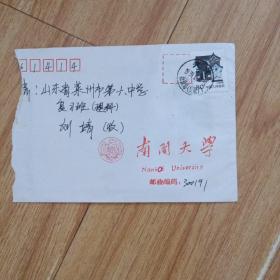 261414
寄:山东省莱州市第十中学
复习班(理科)
刘靖(收)
南开大学
Nankai University
邮政编码:300191